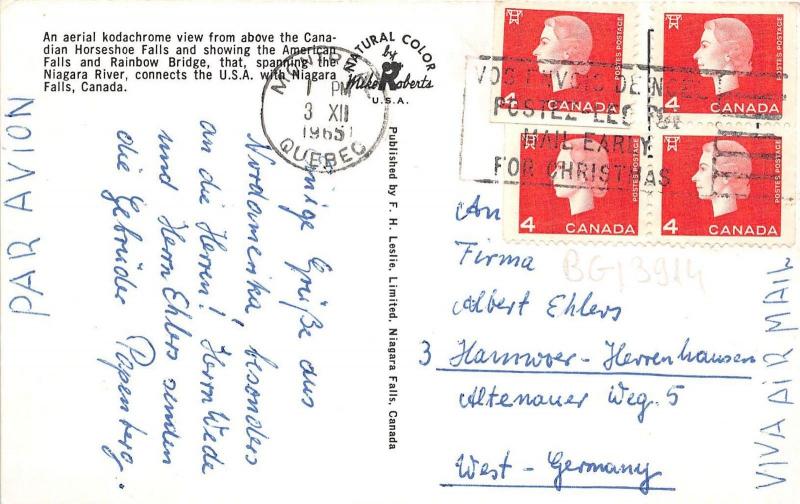 An aerial kodachrome view from above the Cana-
dian Horseshoe Falls and showing the American
Falls and Rainbow Bridge, that, spanning the
Niagara River, connects the U.S.A. with Niagara
Falls, Canada.
NATURAL COLOR
by
Mike Roberts
U.S.A.
1 PM
3 XII
1965
QUEBEC
PAR AVION
Einige Grüße aus
Nordamerika, besonders
an die Herren! Herrn Wede
und Herrn Ehlers senden
die Gebrüder Papenberg.
Published by F. H. Leslie, Limited, Niagara Falls, Canada
POSTES POSTAGE
4 CANADA
POSTES POSTAGE
4 CANADA
POSTES POSTAGE
4 CANADA
POSTES POSTAGE
4 CANADA
MAIL EARLY
FOR CHRISTMAS
An
Firma
BG13914
Albert Ehlers
3 Hannover-Herrenhausen
Altenauer Weg. 5
West-Germany
VIVA AIR MAIL